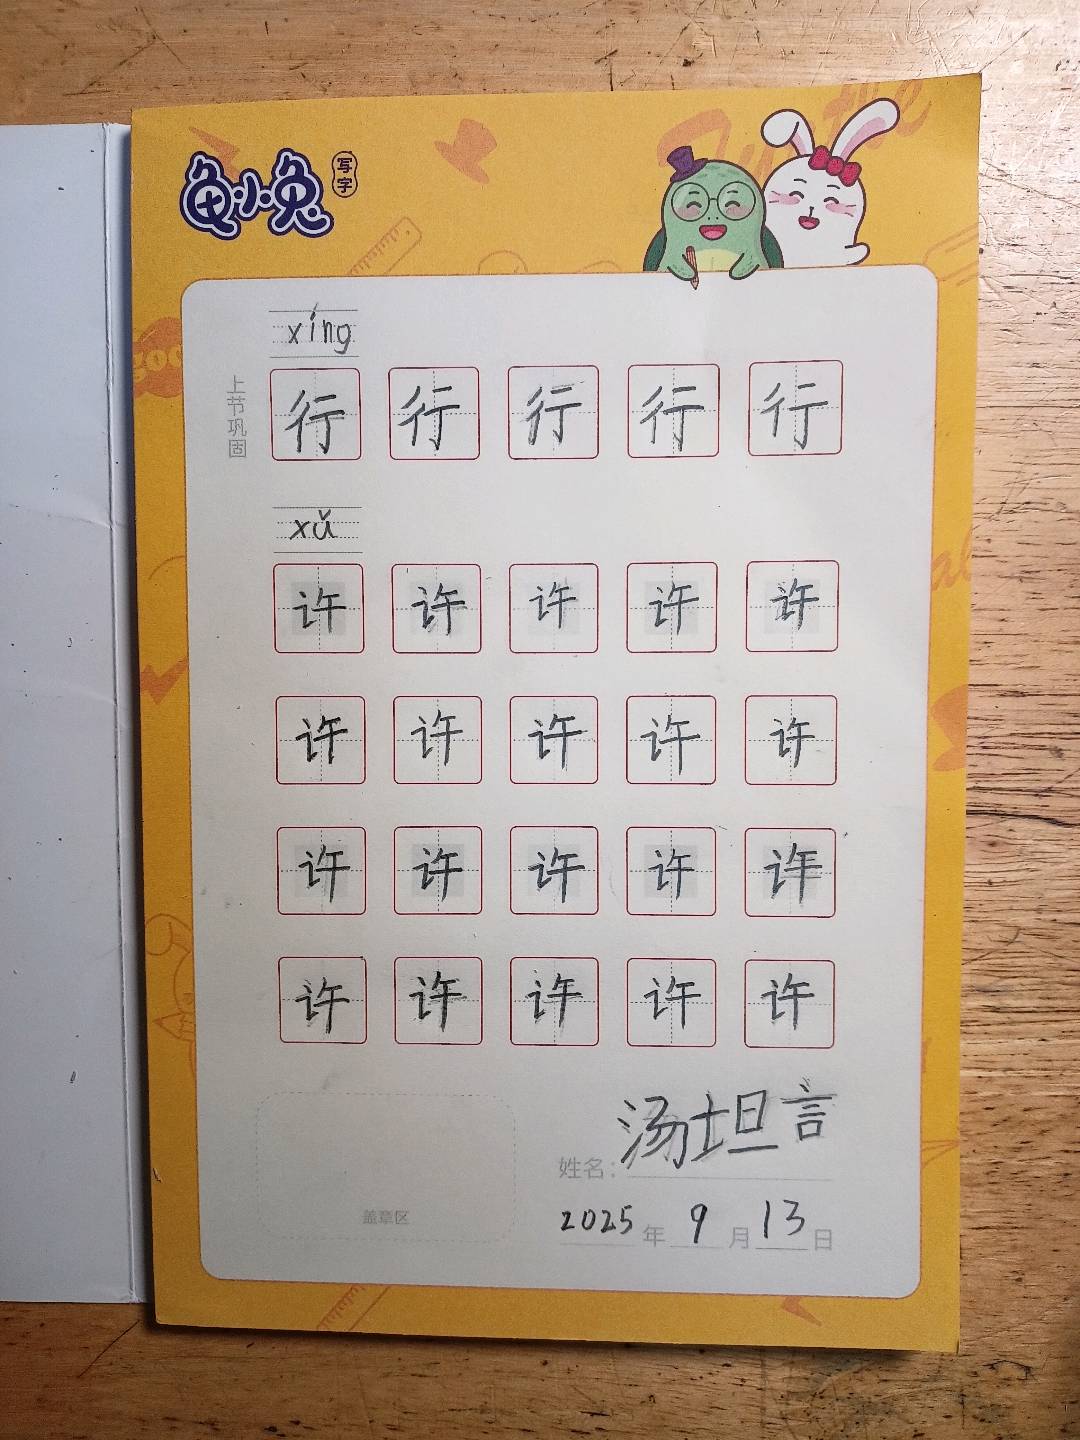 龟小兔 写字
xíng
上节巩固
行 行 行 行 行
xǔ
许 许 许 许 许
许 许 许 许 许
许 许 许 许 许
许 许 许 许 许
姓名：汤坦言
盖章区
2025年9月13日